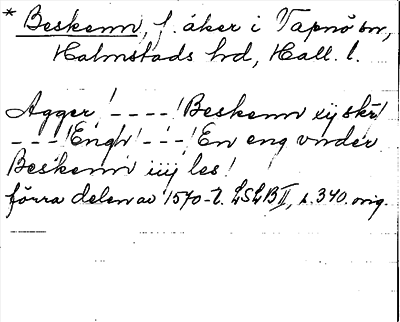 * Beskenn, f. åker i Vapnö sn,
Halmstads hd, Hall. l.
Agger! - - - - ! Beskenn xij skr!
- - - ! Engh! - - - ! En eng vnder
Beskenn iiij les!
förra delen av 1570-t. LSLB II, s. 340. orig.